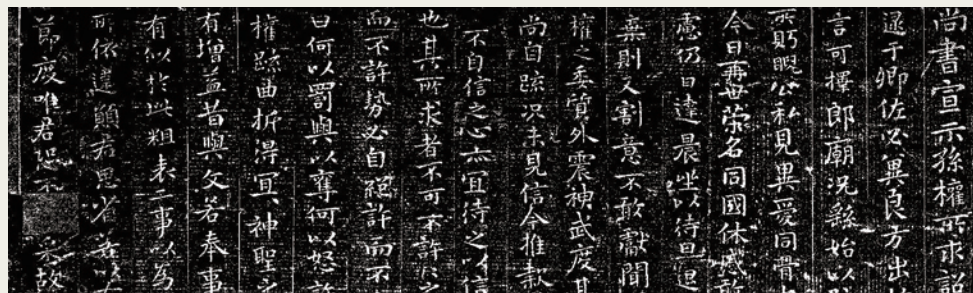 尚書宣示孫權所求詔
逮于卿佐必冀良方出於
言可擇郎廟況繇始以
所眄睨公私見異愛同骨
今日再世榮名同國休慼敢
慮仍日達晨坐以待旦退
棄則又割意不敢獻聞
權之委質外震神武度其
尚自疏況未見信今推款
不自信之心亦宜待之以信
也其所求者不可不許許之
而不許勢必自絕許而不
曰何以罰與以奪何以怒許
權疏曲折得宜宜神聖之
有增益昔與文若奉事
有似於此粗表二事以為
可依違願君思省若以
節度唯君恐不